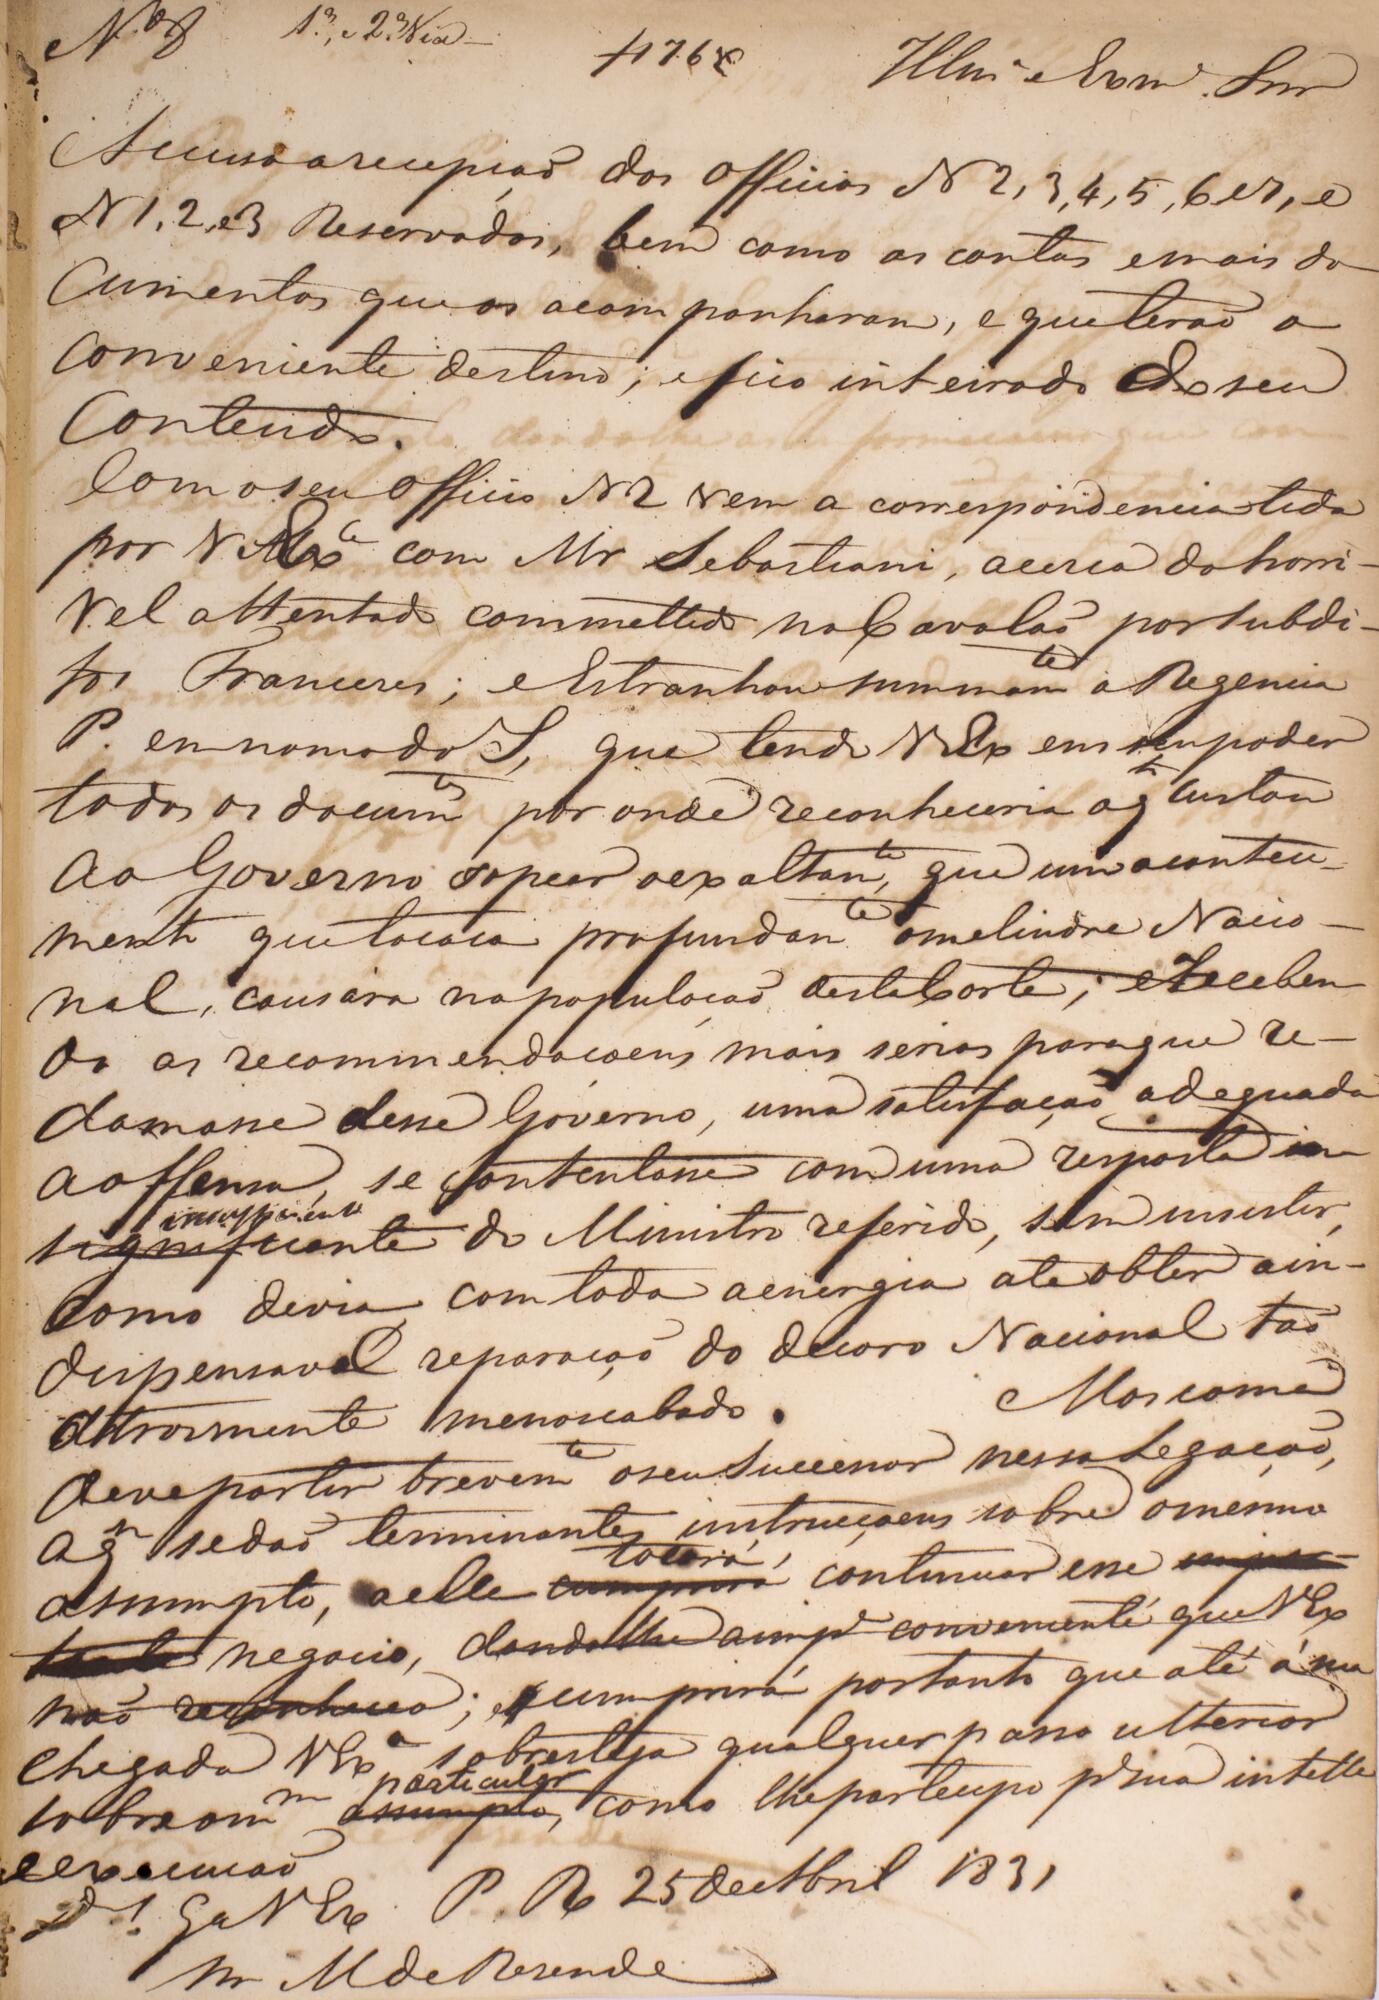 N.º 8 1ª, e 2ª Via
Illmº e Exmº Snr
Accuso a recepção dos Officios N 2, 3, 4, 5, 6 e 7, e
N 1, 2, e 3 Reservados, bem como as contas e mais do-
cumentos que os acompanharam, e que terão o
conveniente destino; e fico inteirado do seu
contendo.
Com o seu Officio N 2 vem a correspondencia tida
por V Exª com Mr Sebastiani, acerca do horri-
vel attentado commettido no Cavalão por subdi-
tos Francezes; e Estranhou summamte a Regencia
P. em nome do I, que tendo V Ex em seu poder
todos os documtos por onde reconheceria a qto custou
ao Governo sopear a exaltam, que um aconteci-
mento que tocava profundamte o melindre Nacio-
nal, causára na população desta Corte; e receben-
do as recommendaçoens mais serias para que re-
clamasse desse Governo, uma satisfação adequada
a offensa, se contentasse com uma resposta in
significante insufficiente do Ministro referido, sem insistir,
como devia, com toda a energia ate obter a in-
dispensavel reparação do decoro Nacional tão
atrosmente menoscabado. Mas como
deve partir brevemte o seu Successor nessa Legação,
a qm se dão terminantes instrucçoens sobre o mesmo
assumpto, a elle cumprirá tocará, continuar esse
negocio, dando lhe a impª conveniente que V Ex
não reconheceo; e cumprirá portanto que até á sua
chegada V Exª sobresteja qualquer passo ulterior
sobre o mmo assumpto particular, como lhe participo pª sua intellª
e execução
Ds Ge V Ex P. R 25 de Abril 1831
Sr M de Resende